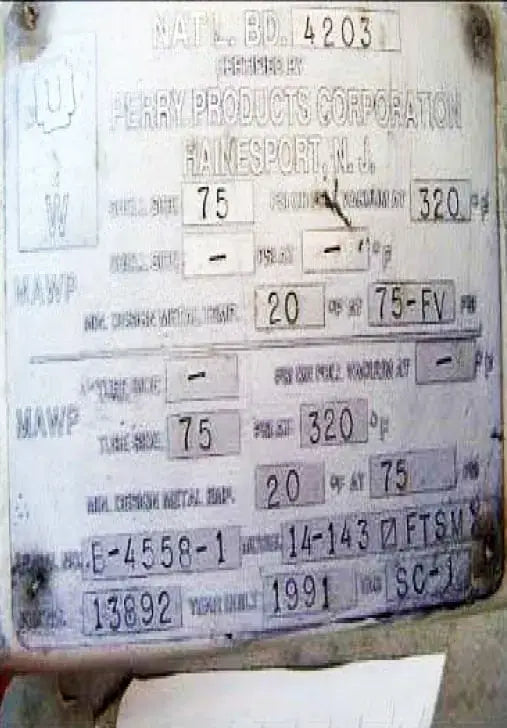 NAT'L. BD. 4203
CERTIFIED BY
PERRY PRODUCTS CORPORATION
HAINESPORT, N. J.
U
W
SHELL SIDE 75 PSI OR FULL VACUUM AT 320 °F
SHELL SIDE - PSI AT - °F
MAWP
MIN. DESIGN METAL TEMP. 20 °F AT 75-FV PSI
TUBE SIDE - PSI OR FULL VACUUM AT - °F
MAWP
TUBE SIDE 75 PSI AT 320 °F
MIN. DESIGN METAL TEMP. 20 °F AT 75 PSI
SERIAL NO. E-4558-1 MODEL 14-143 FTSM
13892 YEAR BUILT 1991 TAG SC-1